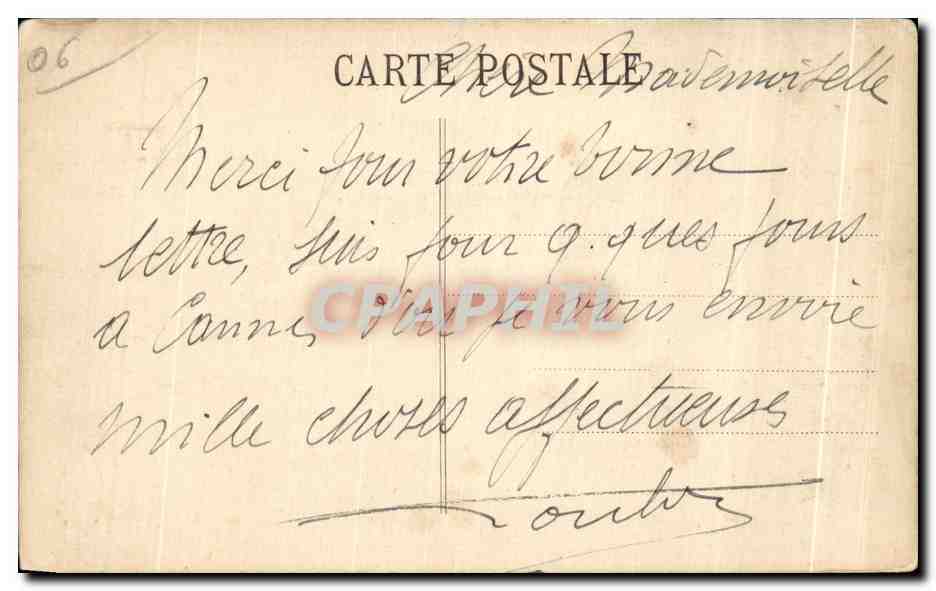 06
CARTE POSTALE
Chère Mademoiselle
Merci pour votre bonne
lettre, suis pour q.ques jours
CPAPHIL
a Cannes d'où je vous envoie
mille choses affectueuses